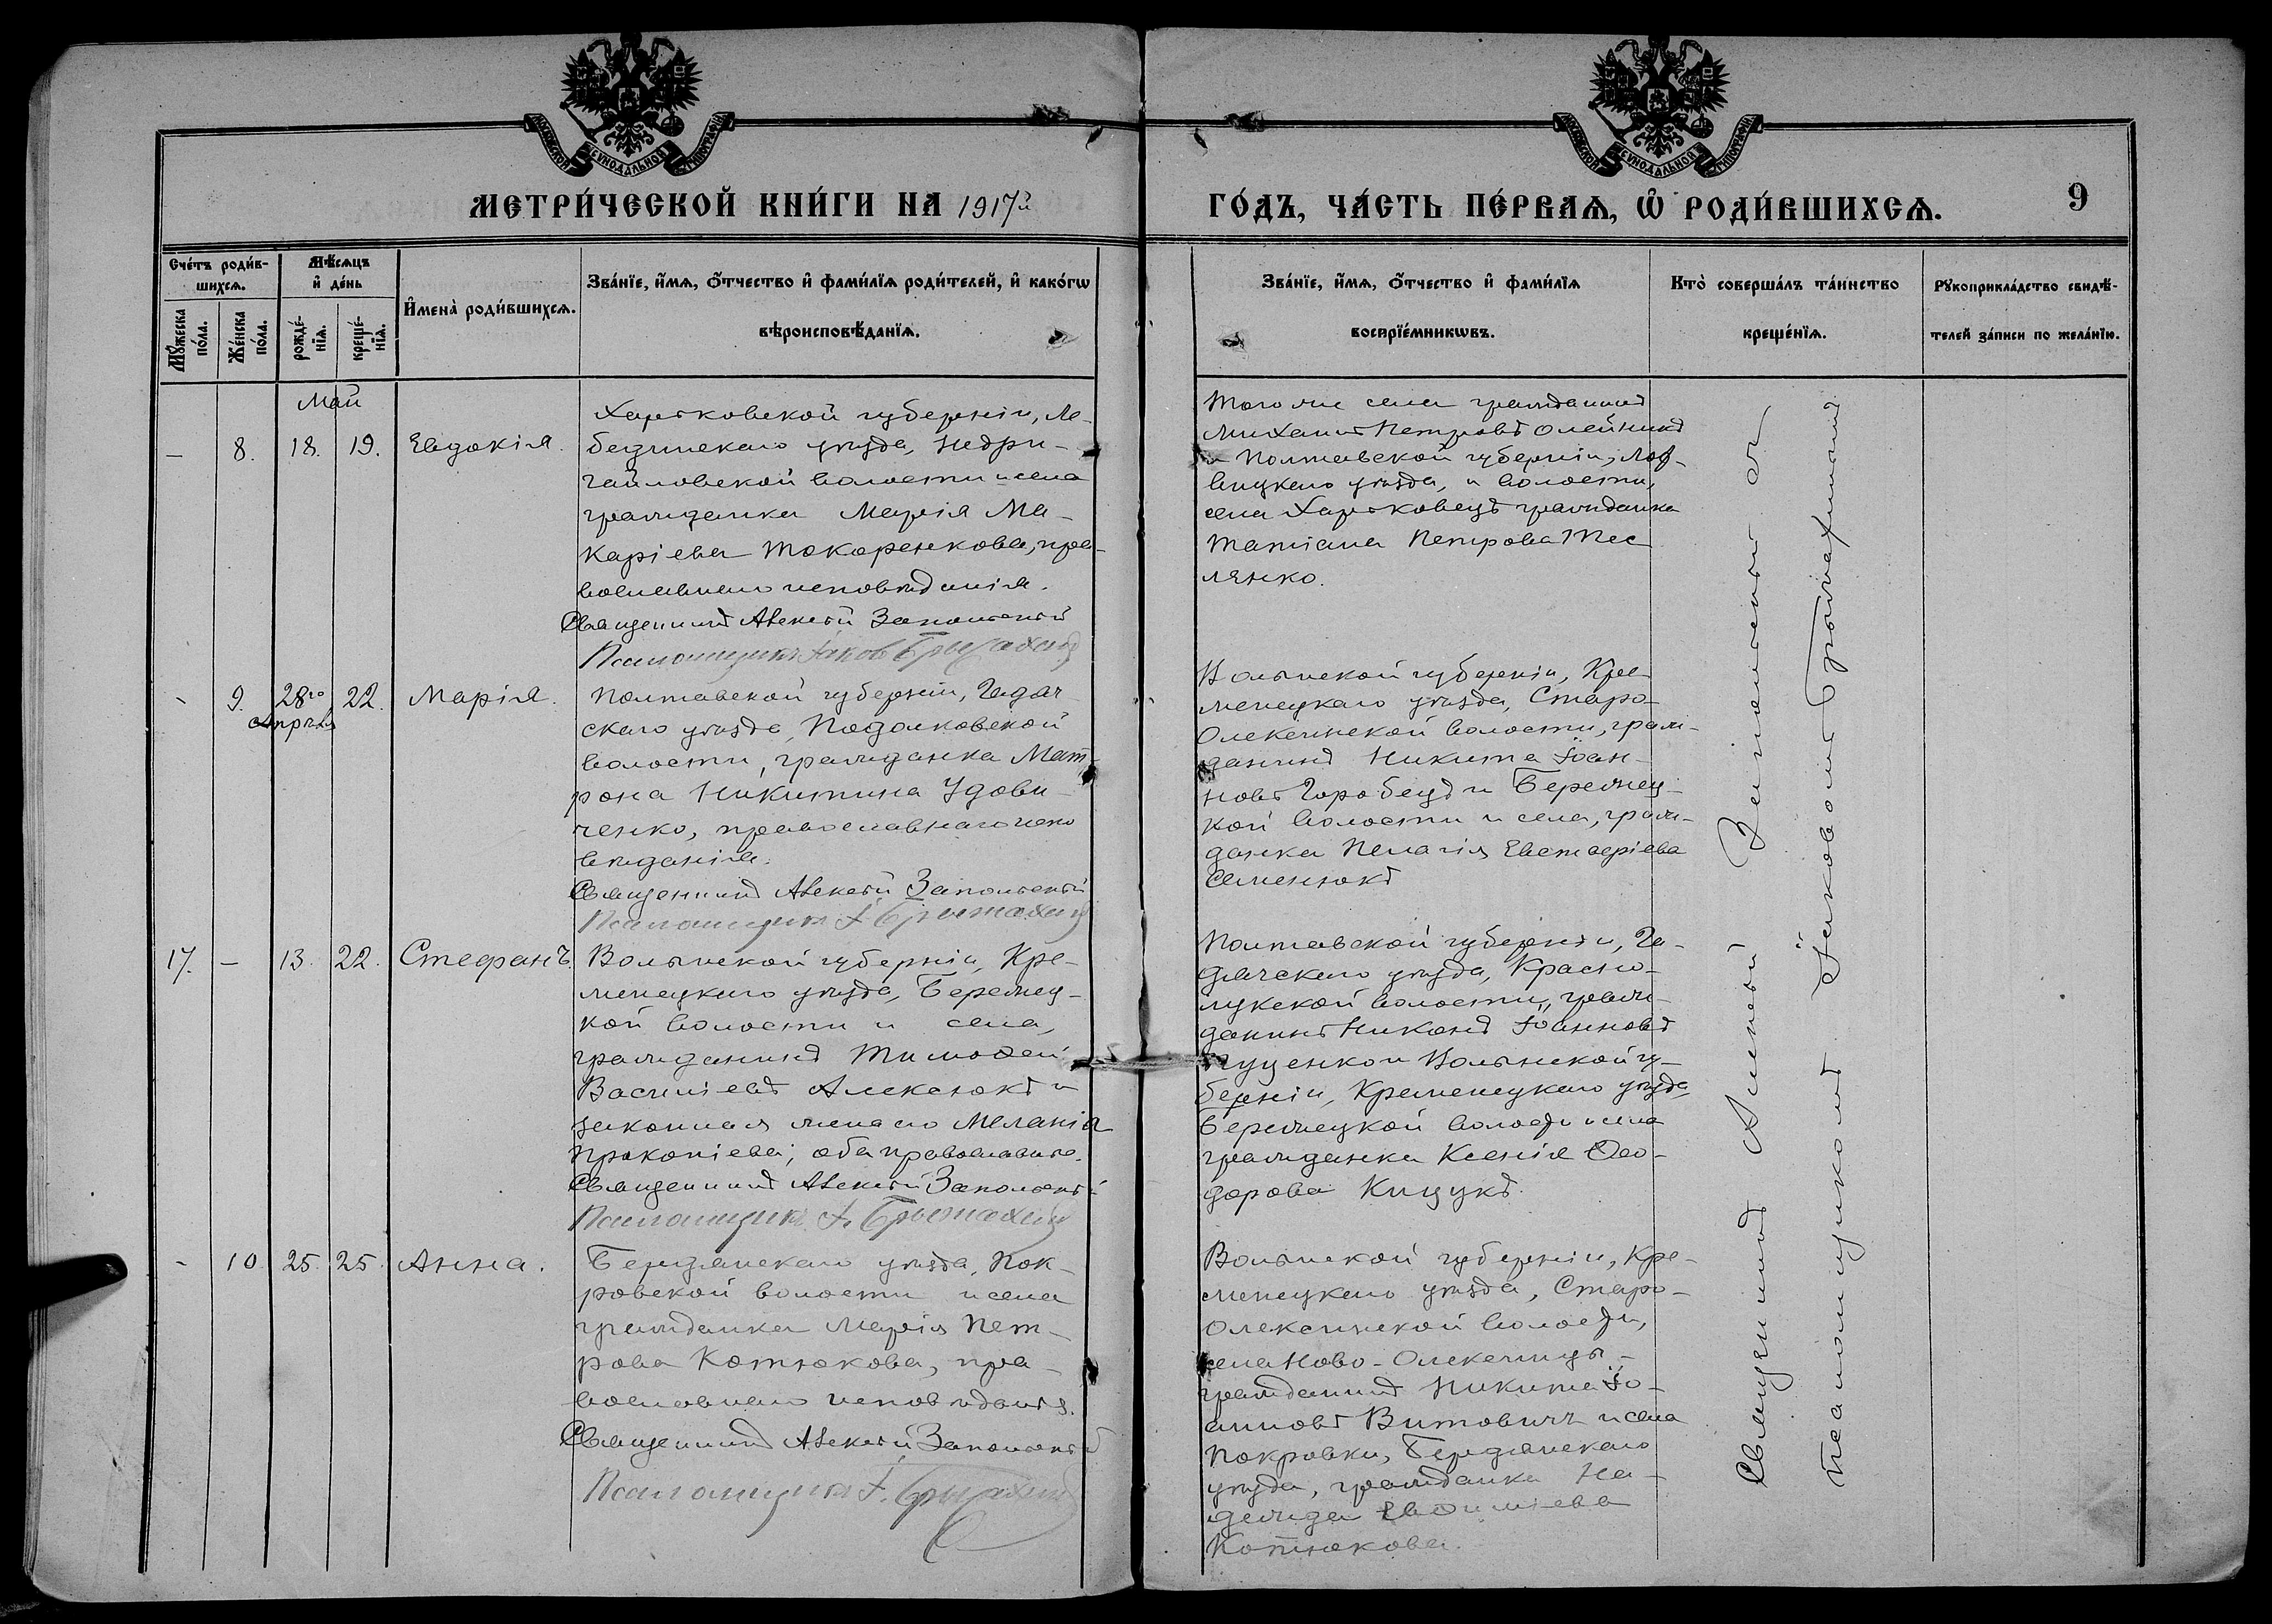 МЕТРИ́ЧЕСКОЙ КНИ́ГИ НА 1917й
ГО́ДЪ, ЧА́СТЬ ПЕ́РВАѦ, Ѡ РОДИ́ВШИХСѦ.
9
Сче́тъ роди́в-
шихсѧ.
Мѣ́сѧцъ
и҆ де́нь
И҆мена̀ роди́вшихсѧ.
Зва́нїе, и҆́мѧ, ѻ҆́тчество и҆ фами́лїѧ роди́телей, и҆ како́гѡ
вѣроисповѣ́данїѧ.
Мꙋ́жеска
по́ла.
Же́нска
по́ла.
рожде́-
нїѧ.
креще́-
нїѧ.
Зва́нїе, и҆́мѧ, ѻ҆́тчество и҆ фами́лїѧ
воспрїе́мникѡвъ.
Кто̀ соверша́лъ та́инство
креще́нїѧ.
Рꙋкоприкла́дство свидѣ́-
телей за́писи по жела́нїю.
Май
— 8. 18. 19. Евдокія.
Харьковской губерніи, Ле-
бединскаго уѣзда, Недри-
гайловской волости и села
гражданка Марія Ма-
каріева Токаренкова, пра-
вославнаго исповѣданія.
Священникъ Алексѣй Запольскій
Псаломщикъ Іаков
Того же села гражданинъ
Михаилъ Петровъ Олейникъ
и Полтавской губерніи, Лох-
вицкаго уѣзда, и волости,
села Харьковецъ гражданка
Татіана Петрова Тес
ленко.
- 9. 28го Апрѣля 22. Марія.
Полтавской губерніи, Гадяч
скаго уѣзда, Подолковской
волости, гражданка Мат-
рона Никитина Удови-
ченко, православнаго испо
вѣданія.
Священникъ Алексѣй Запольскій
Псаломщикъ І.
Волынской губерніи, Кре
менецкаго уѣзда, Старо-
Олексинской волости, граж-
данинъ Никита Іоан-
новъ Горобецъ и Бережец-
кой волости и села, граж-
данка Пелагія Евстафіева
Семенюкъ
17. — 13. 22. Стефанъ.
Волынской губерніи, Кре-
менецкаго уѣзда, Бережец-
кой волости и села,
гражданинъ Тимоѳей
Василіевъ Алексюкъ и
законная жена его Меланія
Прокопіева; оба православные.
Священникъ Алексѣй Запольскій
Псаломщикъ І.
Полтавской губерніи, Га-
дячскаго уѣзда, Красно-
лукской волости, граж-
данинъ Іоанновъ
и Волынской гу-
берніи, Кременецкаго уѣзда,
Бережецкой волости и села
гражданка Ксенія Ѳео-
дорова Кицукъ.
- 10 25. 25. Анна.
Бердянскаго уѣзда, Пок-
ровской волости и села
гражданка Марія Пет-
рова Котюкова, пра-
вославнаго исповѣданія.
Священникъ Алексѣй Запольскій
Псаломщикъ І.
Волынской губерніи, Кре-
менецкаго уѣзда, Старо-
Олексинской волости,
села Ново-Олексинцы-
гражданинъ Никита Іо-
анновъ Витовичъ и села
Покровки, Бердянскаго
уѣзда, гражданка На-
дежда Евѳиміева
Котюкова.
Священникъ Алексѣй Запольскій съ
псаломщикомъ Іаковомъ